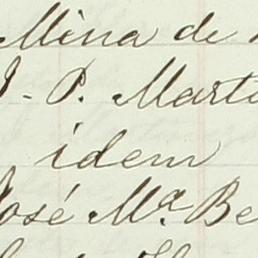 Mina de
J. P. Marti
idem
José Mª Be